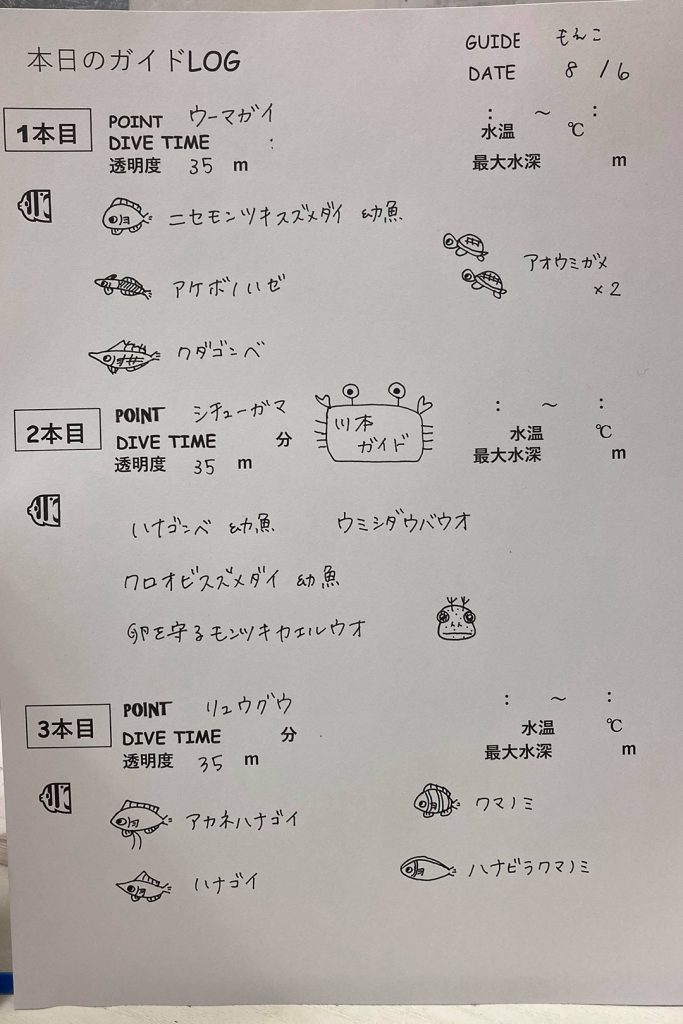 本日のガイドLOG
GUIDE もえこ
DATE 8/6
1本目
POINT ウーマガイ
DIVE TIME :
透明度 35 m
: ～ :
水温 ℃
最大水深 m
ニセモンツキスズメダイ 幼魚
アオウミガメ
×2
アケボノハゼ
クダゴンベ
2本目
POINT シチューガマ
DIVE TIME 分
透明度 35 m
川本
ガイド
: ～ :
水温 ℃
最大水深 m
ハナゴンベ 幼魚 ウミシダウバウオ
クロオビスズメダイ 幼魚
卵を守るモンツキカエルウオ
3本目
POINT リュウグウ
DIVE TIME 分
透明度 35 m
: ～ :
水温 ℃
最大水深 m
アカネハナゴイ
クマノミ
ハナゴイ
ハナビラクマノミ